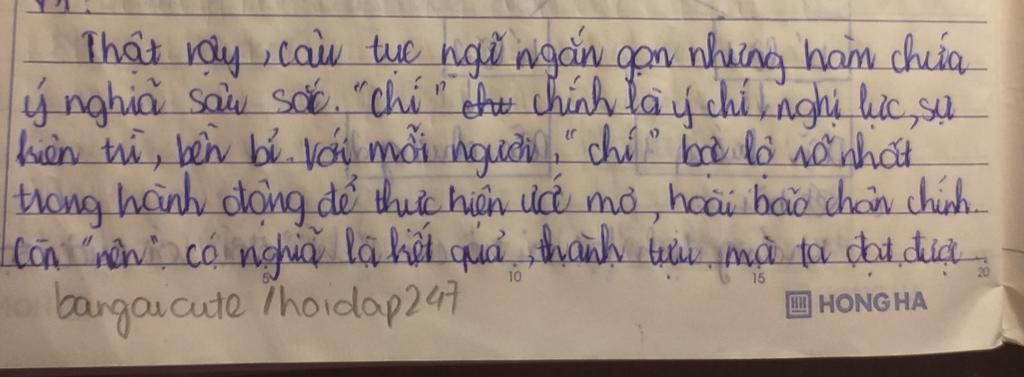 Thật vậy, câu tục ngữ ngắn gọn nhưng hàm chứa
ý nghĩa sâu sắc. "Chí" chính là ý chí, nghị lực, sự
kiên trì, bền bỉ. Với mỗi người, "chí" bộc lộ rõ nhất
trong hành động để thực hiện ước mơ, hoài bão chân chính.
Còn "nên" có nghĩa là kết quả, thành tựu mà ta đạt được
10 15 20
bangaicute /hoidap247
HH HONG HA